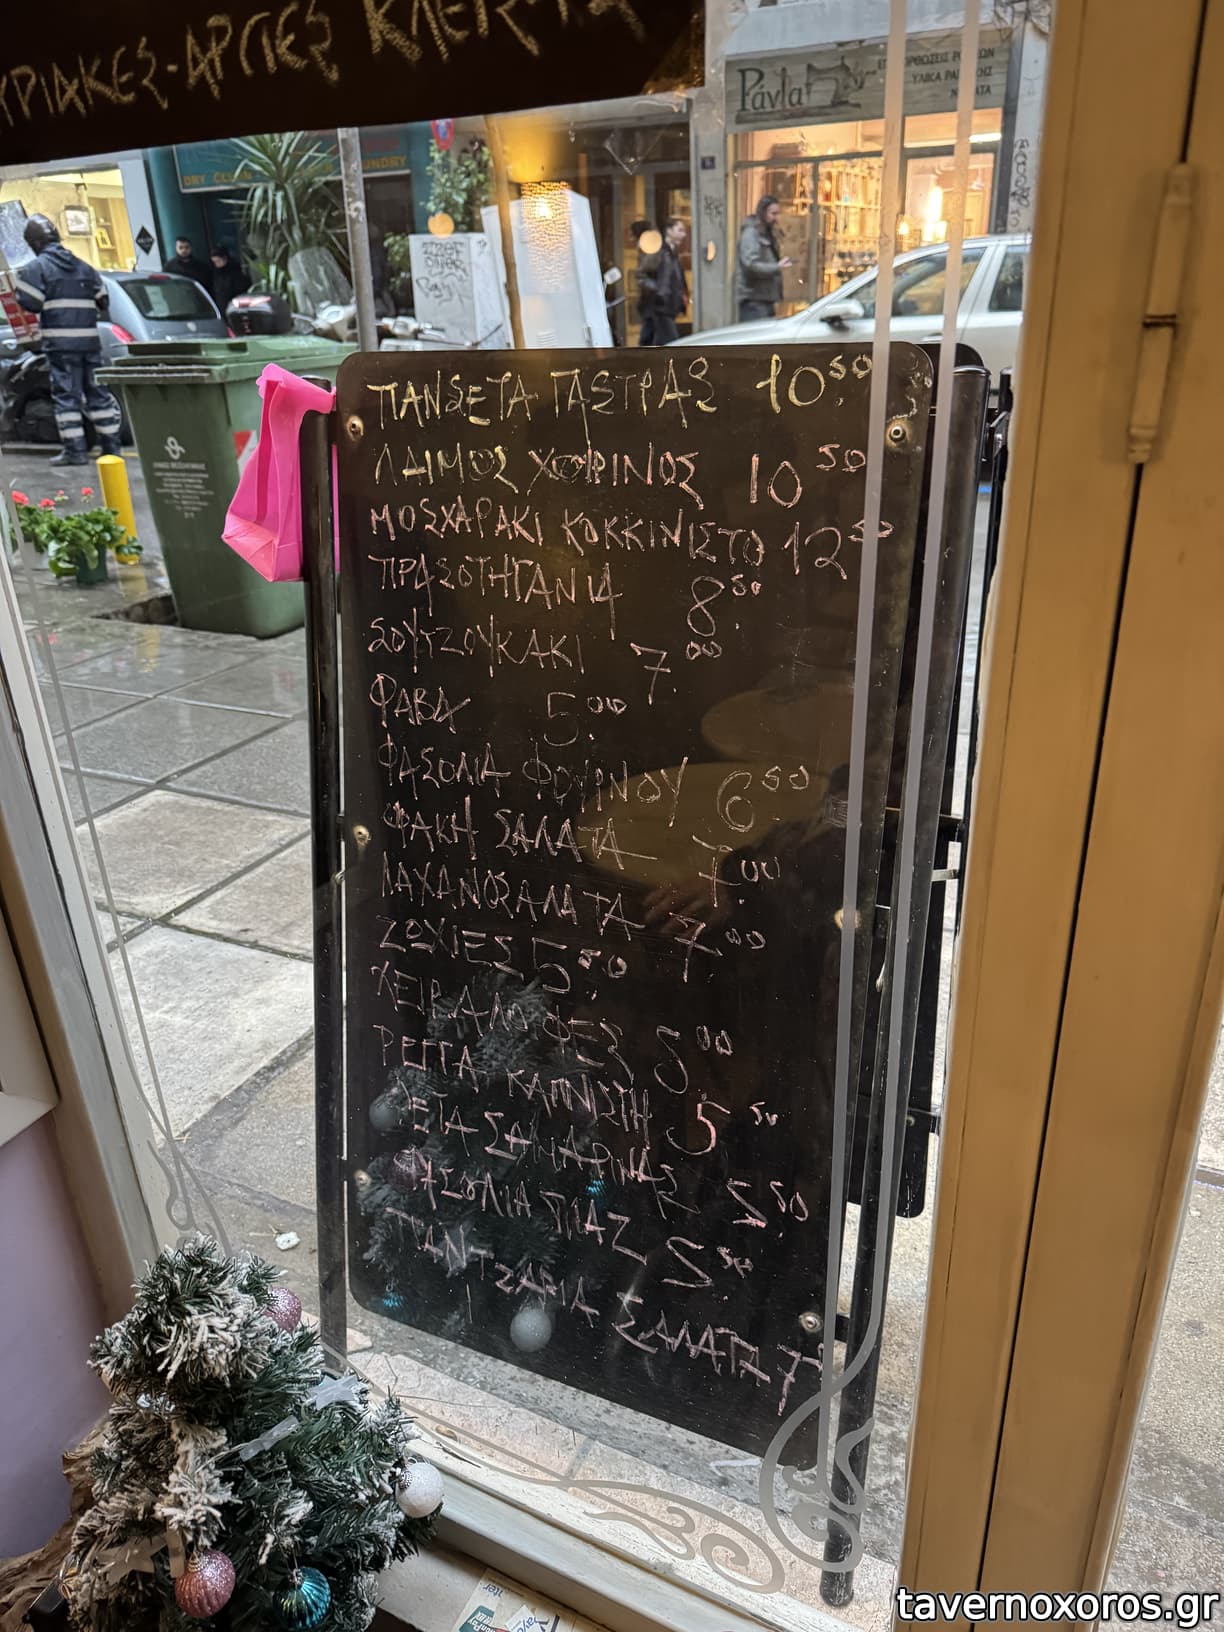 ΥΡΙΑΚΕΣ-ΑΡΓΙΕΣ ΚΛΕΙΣΤΑ
Ράνια
ΕΠΙΔΙΟΡΘΩΣΕΙΣ ΡΟΥΧΩΝ
ΥΛΙΚΑ ΡΑΠΤΙΚΗΣ
DRY CLEAN LAUNDRY
ΠΑΝΣΕΤΑ ΓΑΣΤΡΑΣ 10.50
ΛΑΙΜΟΣ ΧΟΙΡΙΝΟΣ 10.50
ΜΟΣΧΑΡΑΚΙ ΚΟΚΚΙΝΙΣΤΟ 12.50
ΠΡΑΣΟΤΗΓΑΝΙΑ 8.50
ΣΟΥΤΖΟΥΚΑΚΙ 7.00
ΦΑΒΑ 5.00
ΦΑΣΟΛΙΑ ΦΟΥΡΝΟΥ 6.50
ΦΑΚΗ ΣΑΛΑΤΑ 7.00
ΛΑΧΑΝΟΣΑΛΑΤΑ 7.00
ΖΩΧΙΕΣ 5.50
ΧΕΙΡΑΛΟΙΦΕΣ 5.00
ΡΕΓΓΑ ΚΑΠΝΙΣΤΗ 5.50
ΦΕΤΑ ΣΑΜΑΡΙΝΑΣ 5.50
ΦΑΣΟΛΙΑ ΠΙΑΖ 5.50
ΠΑΝΤΖΑΡΙΑ ΣΑΛΑΤΑ 7
tavernoxoros.gr